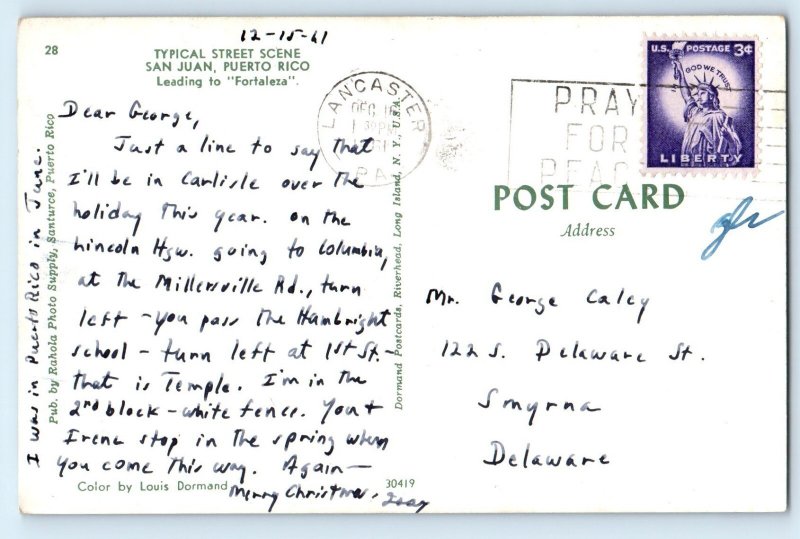 28
12-15-61
TYPICAL STREET SCENE
SAN JUAN, PUERTO RICO
Leading to "Fortaleza".
Dear George,
Just a line to say that
I'll be in Carlisle over the
holiday this year. on the
Lincoln Hgw. going to Columbia,
at the Millersville Rd., turn
left - you pass the Hambright
school - turn left at 1st St. -
that is Temple. I'm in the
2nd block - white fence. You +
Irene stop in the spring when
you come this way. Again -
Merry Christmas.
I was in Puerto Rico in June.
Pub. by Rahola Photo Supply, Santurce, Puerto Rico
Color by Louis Dormand
30419
Dormand Postcards, Riverhead, Long Island, N. Y., U.S.A.
LANCASTER
DEC
PA
PRAY
FOR
PEACE
U.S. POSTAGE 3¢
IN GOD WE TRUST
LIBERTY
POST CARD
Address
Mr. George Caley
122 S. Delaware St.
Smyrna
Delaware